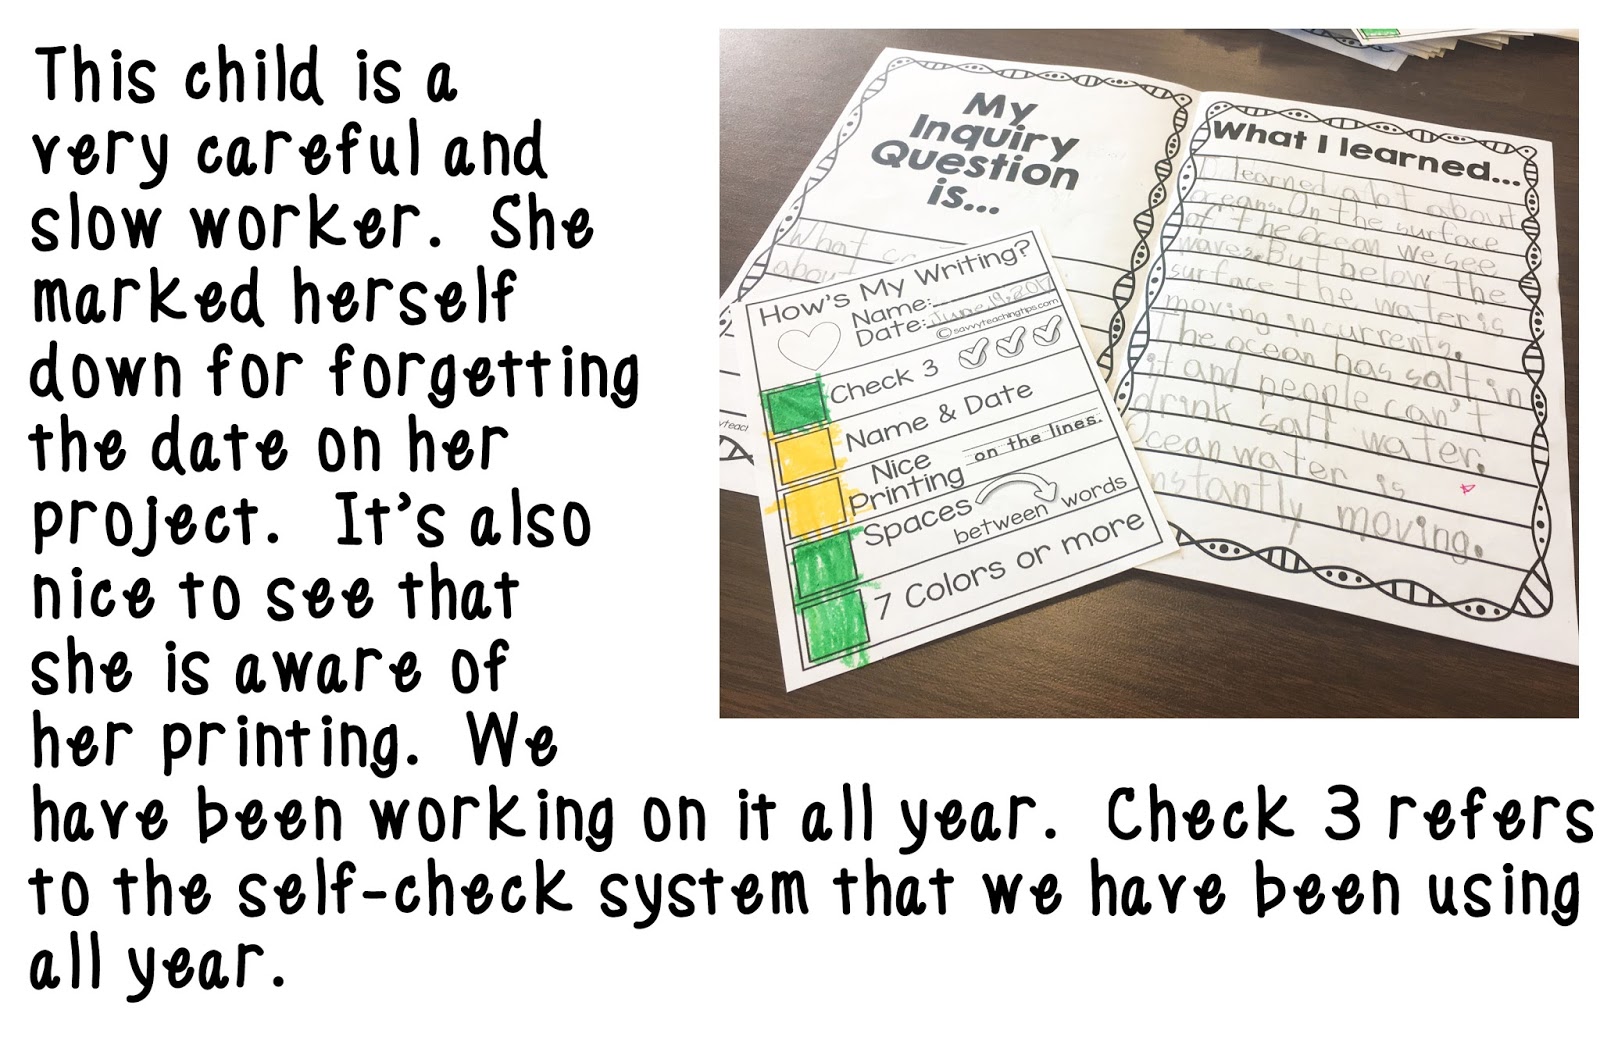 This child is a
very careful and
slow worker. She
marked herself
down for forgetting
the date on her
project. It's also
nice to see that
she is aware of
her printing. We
have been working on it all year. Check 3 refers
to the self-check system that we have been using
all year.
My
Inquiry
Question
is...
What
about
How's My Writing?
Name:
Date: June 19, 2017
©savvyteachingtips.com
Check 3
Name & Date
Nice
Printing on the lines.
Spaces
between words
7 Colors or more
What I learned...
I learned a lot about
oceans. On the surface
of the ocean we see
waves. But below the
surface the water is
moving in currents.
The ocean has salt in
it and people can't
drink salt water.
Ocean water is
constantly moving.